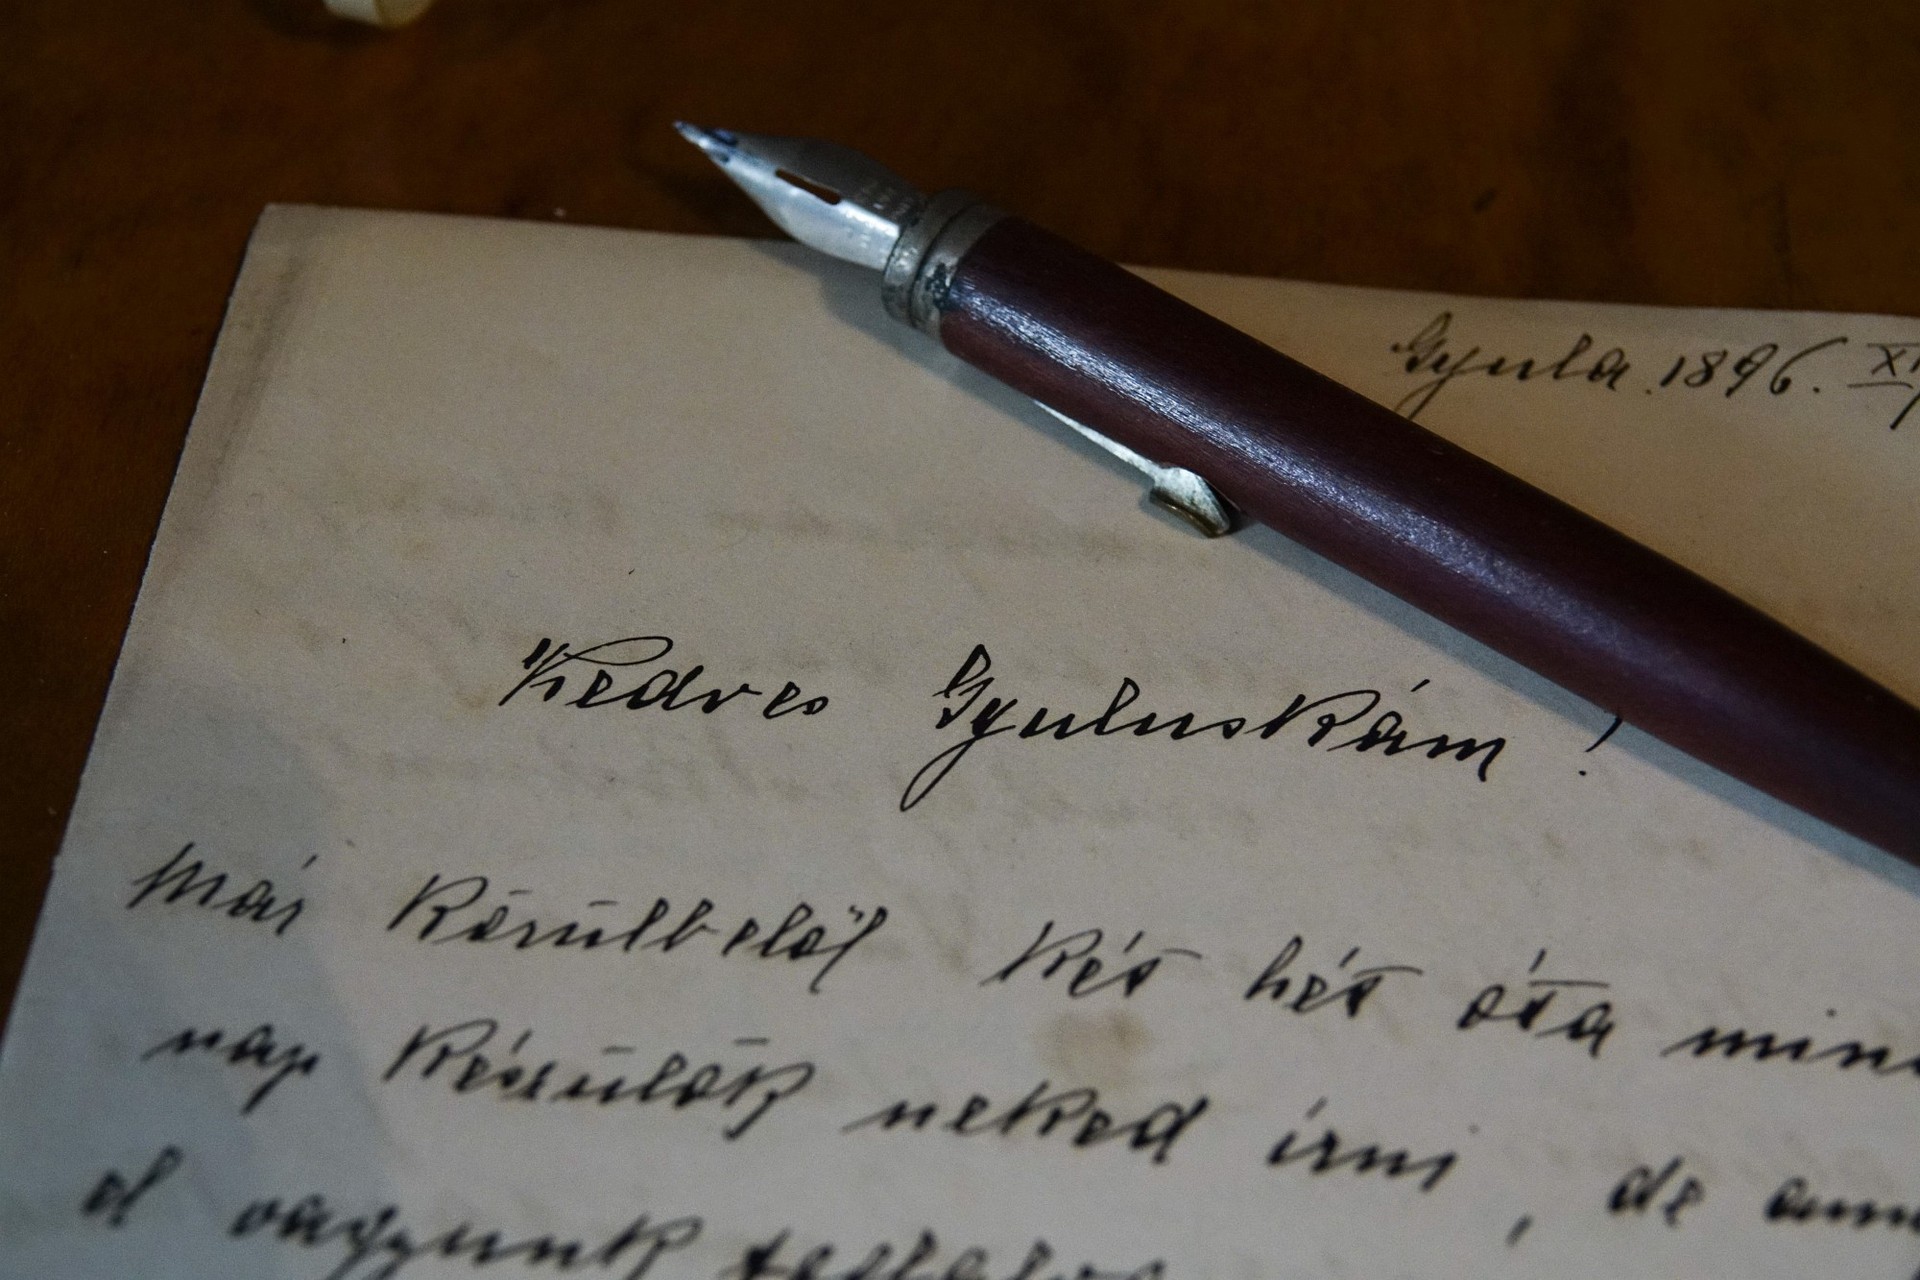 Gyula. 1896. XI
Kedves Gyuluskám!
Már körülbelől két hét óta mind
nap készülök neked írni, de ann
el vagyunk